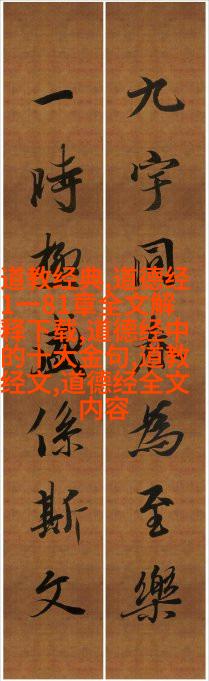 九宇同為至樂
一時係斯文
道教经典,道德经
1一81章全文解
释下载,道德经中
的十大金句,道教
经文,道德经全文
内容